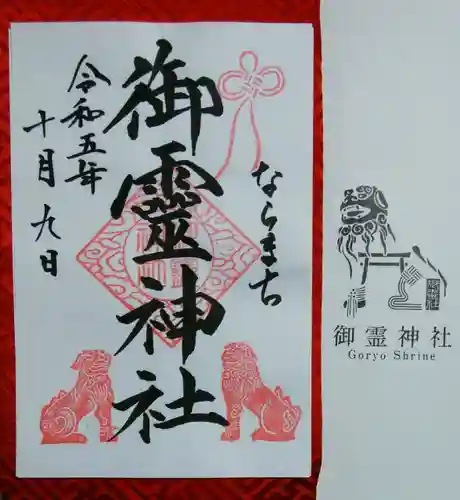 ならまち
御靈神社
令和五年
十月九日
御霊神社
Goryo Shrine